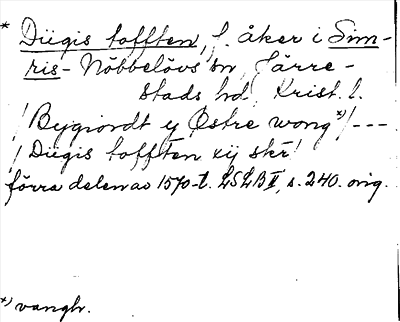 * Diigis tofften, f. åker i Sim-
ris-Nöbbelövs sn, Järre-
stads hd, Krist. l.
/ Bygiordt y Østre wong *) / ---
/ Diigis tofften xij skr!
förra delen av 1570-t. LSLB II, s. 240. orig.
*) vangbr.